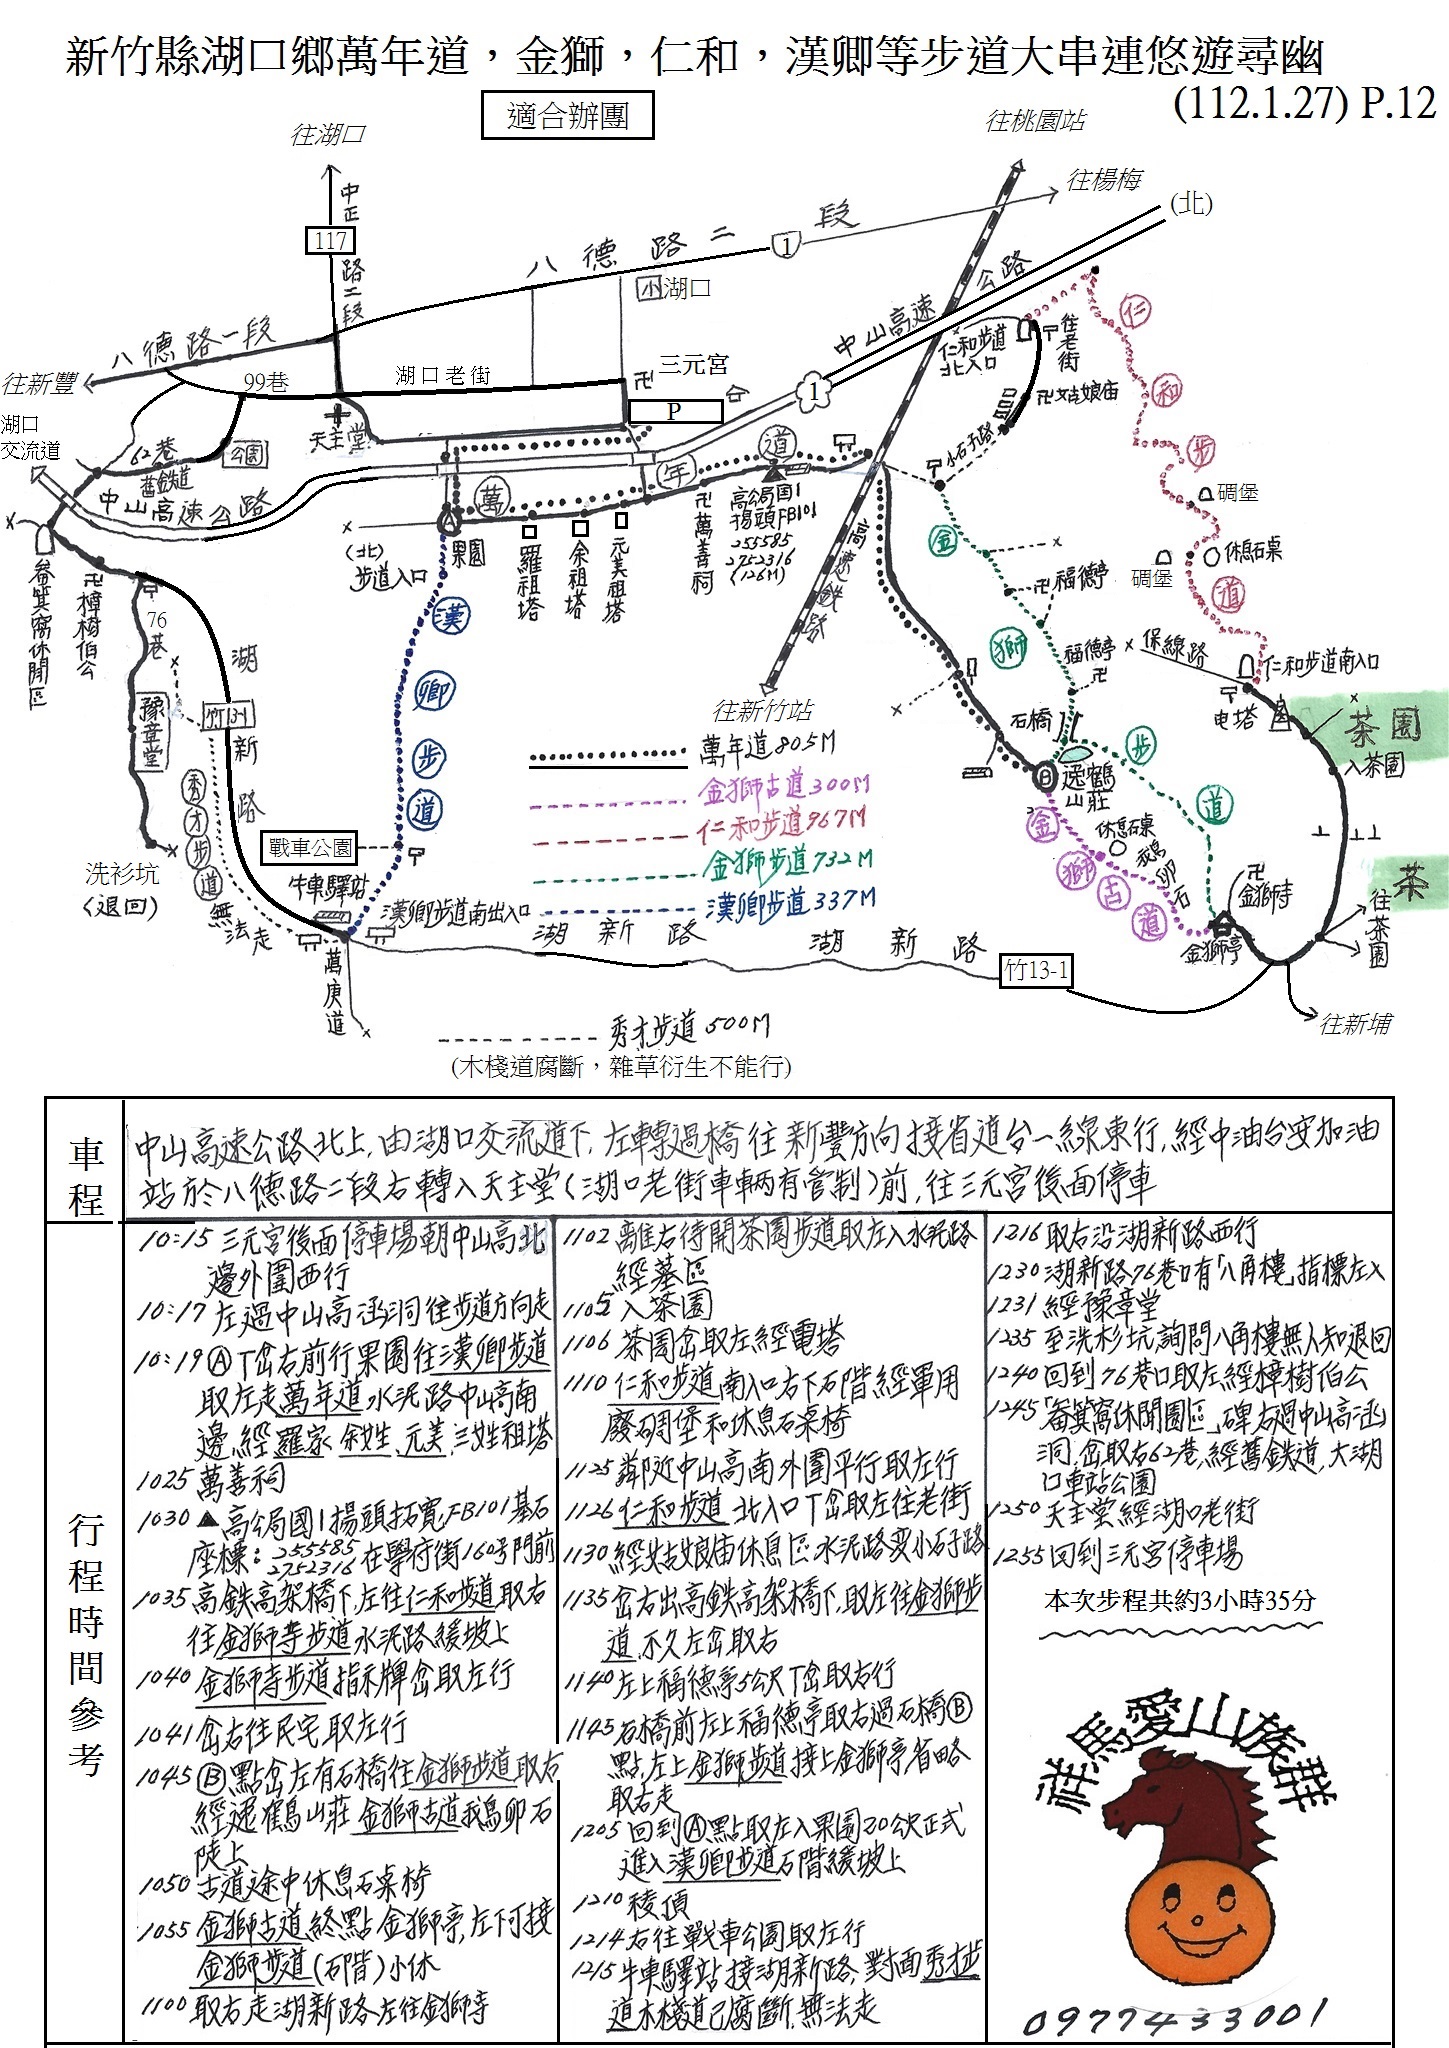 新竹縣湖口鄉萬年道，金獅，仁和，漢卿等步道大串連悠遊尋幽
(112.1.27) P.12
適合辦團
往湖口
往桃園站
往楊梅
(北)
中正路二段
117
八德路二段
1
小湖口
八德路一段
往新豐
99巷
湖口老街
三元宮
卍
P
中山高速公路
1
天主堂
湖口
交流道
62巷
舊鉄道
公園
中山高速公路
萬年道
A
果園
(北)
步道入口
羅祖塔
余祖塔
元美祖塔
卍萬善祠
高公局國1
楊頭FB101
255585
2752316
(126M)
高速鉄路
往新竹站
仁和步道
北入口
往老街
卍姑娘庙
小石子路
仁和步道
碉堡
碉堡
休息石桌
仁和步道南入口
保線路
电塔
茶園
入茶園
茶
往茶園
往新埔
金獅步道
卍福德亭
福德亭
卍
石橋
B
逸鶴
山莊
休息石桌
鵝卵石
金獅古道
卍金獅寺
金獅亭
畚箕窩休閒區
卍樟樹伯公
76巷
豫章堂
洗衫坑
(退回)
竹13-1
湖新路
秀才步道
無法走
漢卿步道
戰車公園
牛車驛站
漢卿步道南出入口
萬庚道
湖新路
湖新路
竹13-1
萬年道805M
金獅古道300M
仁和步道967M
金獅步道732M
漢卿步道337M
秀才步道500M
(木棧道腐斷，雜草衍生不能行)
車程
中山高速公路北上,由湖口交流道下,左轉過橋往新豐方向接省道台一線東行,經中油台安加油
站於八德路二段右轉入天主堂(湖口老街車輛有管制)前,往三元宮後面停車
行程時間參考
10:15 三元宮後面停車場朝中山高北
邊外圍西行
10:17 左過中山高涵洞往步道方向走
10:19 A丁岔右前行果園往漢卿步道
取左走萬年道水泥路中山高南
邊,經羅家,余姓,元美,三姓祖塔
1025 萬善祠
1030 ▲高公局國1楊頭拓寬FB101基石
座標:255585 2752316在學府街160号門前
1035 高鉄高架橋下,左往仁和步道取右
往金獅寺步道水泥路緩坡上
1040 金獅寺步道指示牌岔取左行
1041 岔右往民宅取左行
1045 B點岔左有石橋往金獅步道取右
經逸鶴山莊金獅古道鵝卵石
陡上
1050 古道途中休息石桌椅
1055 金獅古道終點金獅亭,左下可接
金獅步道(石階)小休
1100 取右走湖新路左往金獅寺
1102 離右待開茶園步道取左入水泥路
經墓區
1105 入茶園
1106 茶園岔取左經電塔
1110 仁和步道南入口右下石階經軍用
廢碉堡和休息石桌椅
1125 鄰近中山高南外圍平行取左行
1126 仁和步道北入口丁岔取左往老街
1130 經姑娘庙休息區水泥路变小石子路
1135 岔右出高鉄高架橋下,取左往金獅步
道,不久左岔取右
1140 左上福德亭5公尺丁岔取右行
1145 石橋前左上福德亭取右過石橋B
點,左上金獅步道接上金獅亭省略
取右走
1205 回到A點取左入果園20公尺正式
進入漢卿步道石階緩坡上
1210 稜頂
1214 右往戰車公園取左行
1215 牛車驛站接湖新路,對面秀才步
道木棧道已腐斷,無法走
1216 取右沿湖新路西行
1230 湖新路76巷口有「八角樓」指標左入
1231 經豫章堂
1235 至洗杉坑詢問八角樓無人知退回
1240 回到76巷口取左經樟樹伯公
1245 「畚箕窩休閒園區」碑右過中山高涵
洞,岔取右62巷,經舊鉄道,大湖
口車站公園
1250 天主堂經湖口老街
1255 回到三元宮停車場
本次步程共約3小時35分
祥馬愛山族群
0977433001